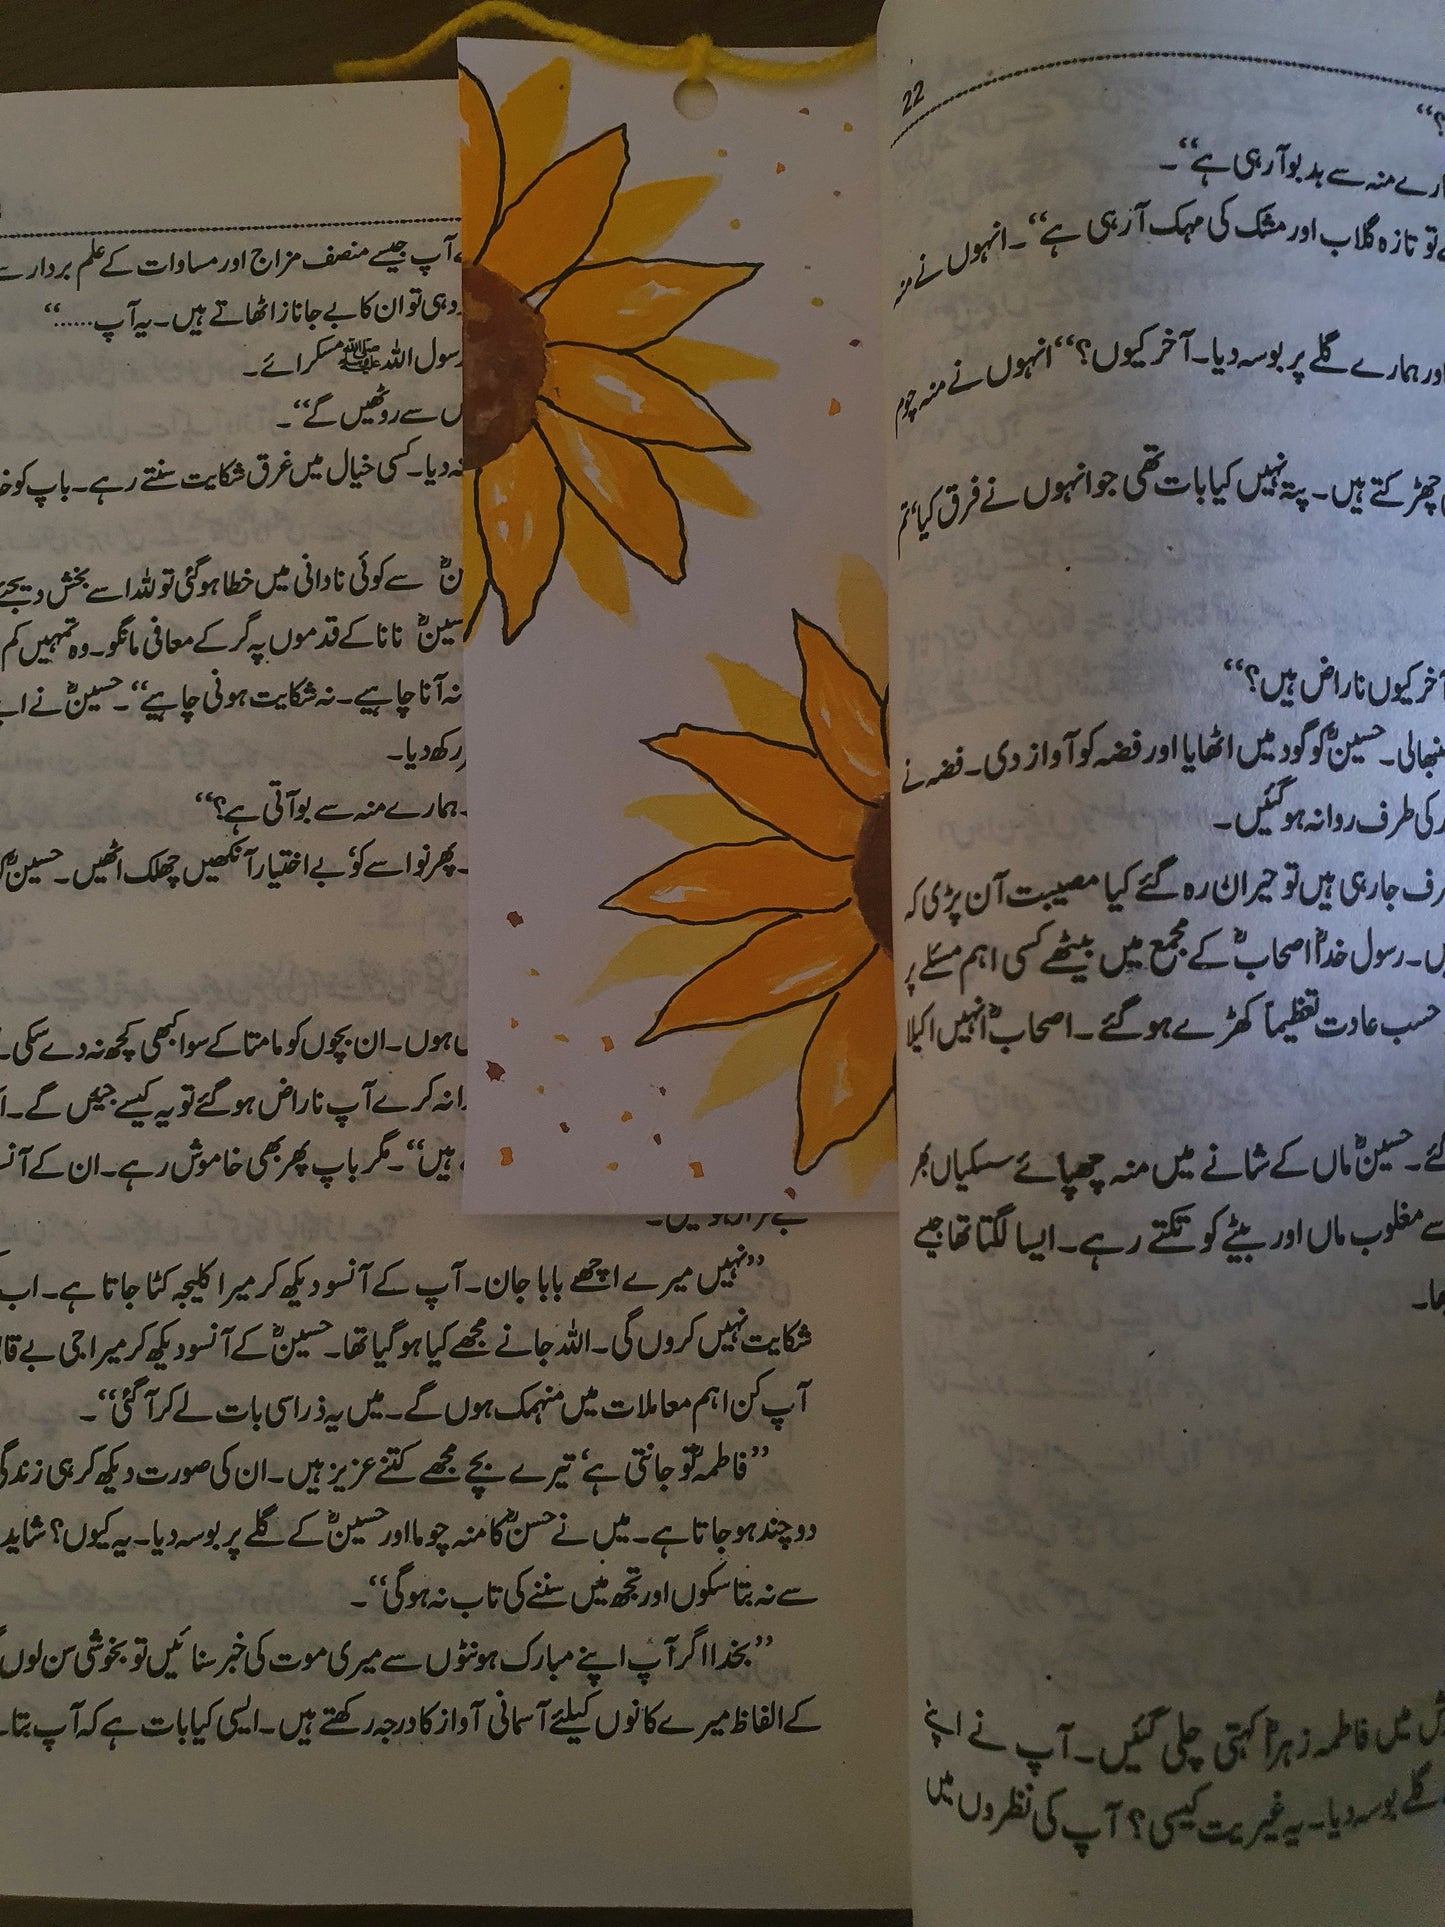 22
؟‘‘
منہ سے بدبو آ رہی ہے‘‘۔
تو تازہ گلاب اور مشک کی مہک آ رہی ہے‘‘۔ انہوں نے منہ
اور ہمارے گلے پر بوسہ دیا۔ آخر کیوں؟‘‘ انہوں نے منہ چوم
چھڑکتے ہیں۔ پتہ نہیں کیا بات تھی جو انہوں نے فرق کیا‘ تم
آخر کیوں ناراض ہیں؟‘‘
حسینؓ کو گود میں اٹھایا اور فضہ کو آواز دی۔ فضہ نے
کی طرف روانہ ہو گئیں۔
جا رہی ہیں تو حیران رہ گئے کیا مصیبت آن پڑی کہ
رسول خداؐ اصحابؓ کے مجمع میں بیٹھے کسی اہم مسئلے پر
حسب عادت تعظیماً کھڑے ہو گئے۔ اصحابؓ انہیں اکیلا
گئے۔ حسینؓ ماں کے شانے میں منہ چھپائے سسکیاں بھر
سے مغلوب ماں اور بیٹے کو تکتے رہے۔ ایسا لگتا تھا جیسے
میں فاطمہ زہراؓ کہتی چلی گئیں۔ آپ نے اپنے
گلے بوسہ دیا۔ یہ غیریت کیسی؟ آپ کی نظروں میں
آپ جیسے منصف مزاج اور مساوات کے علم بردار سے
وہی تو ان کا بے جا ناز اٹھاتے ہیں۔ یہ آپ......‘‘
رسول اللہ ﷺ مسکرائے۔
سے روٹھیں گے‘‘۔
نہ دیا۔ کسی خیال میں غرق شکایت سنتے رہے۔ باپ کو
سے کوئی نادانی میں خطا ہو گئی تو للہ اسے بخش دیجئے
نانا کے قدموں پہ گر کے معافی مانگو۔ وہ تمہیں کم
نہ آنا چاہیے۔ نہ شکایت ہونی چاہیے‘‘۔ حسینؓ نے
رکھ دیا۔
ہمارے منہ سے بو آتی ہے؟‘‘
پھر نواسے کو‘ بے اختیار آنکھیں چھلک اٹھیں۔ حسینؓ
ہوں۔ ان بچوں کو مامتا کے سوا کبھی کچھ نہ دے سکی۔
نہ کرے آپ ناراض ہو گئے تو یہ کیسے جیئں گے۔
ہیں‘‘۔ مگر باپ پھر بھی خاموش رہے۔ ان کے
’’نہیں میرے اچھے بابا جان۔ آپ کے آنسو دیکھ کر میرا کلیجہ کٹا جاتا ہے۔ اب
شکایت نہیں کروں گی۔ اللہ جانے مجھے کیا ہو گیا تھا۔ حسینؓ کے آنسو دیکھ کر میرا جی بے
آپ کن اہم معاملات میں منہمک ہوں گے۔ میں یہ ذرا سی بات لے کر آ گئی‘‘۔
’’فاطمہؓ تو جانتی ہے‘ تیرے بچے مجھے کتنے عزیز ہیں۔ ان کی صورت دیکھ کر ہی
دو چند ہو جاتا ہے۔ میں نے حسنؓ کا منہ چوما اور حسینؓ کے گلے پر بوسہ دیا۔ یہ کیوں؟ شاید
سے نہ بتا سکوں اور تجھ میں سننے کی تاب نہ ہو گی‘‘۔
’’بخدا اگر آپ اپنے مبارک ہونٹوں سے میری موت کی خبر سنائیں تو بخوشی سن لوں
کے الفاظ میرے کانوں کیلئے آسمانی آواز کا درجہ رکھتے ہیں۔ ایسی کیا بات ہے کہ آپ